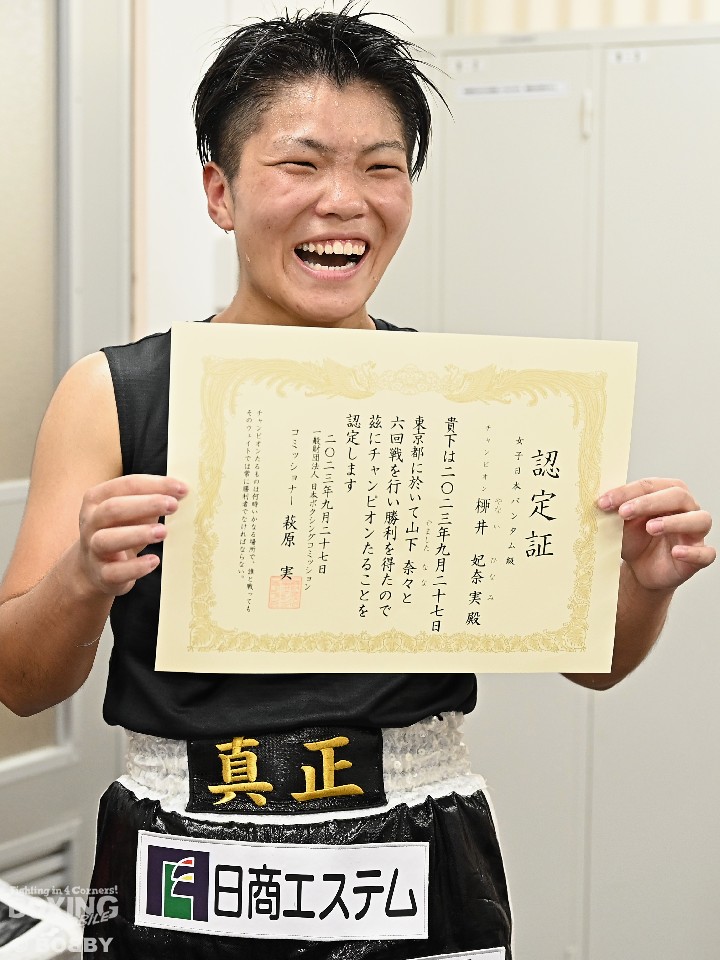 認定証
女子日本バンタム級
チャンピオン 栁井 妃奈実 殿
やない ひなみ
貴下は二〇二三年九月二十七日
東京都に於いて山下 奈々と
やました なな
六回戦を行い勝利を得たので
茲にチャンピオンたることを
認定します
二〇二三年九月二十七日
一般財団法人 日本ボクシングコミッション
コミッショナー 萩原 実
チャンピオンたるものは何時いかなる場所で、誰と戦っても
そのウェイトでは常に勝利者でなければならない。
真正
日商エステム
Fighting in 4 Corners!
BOXING
MOBILE
BOBBY